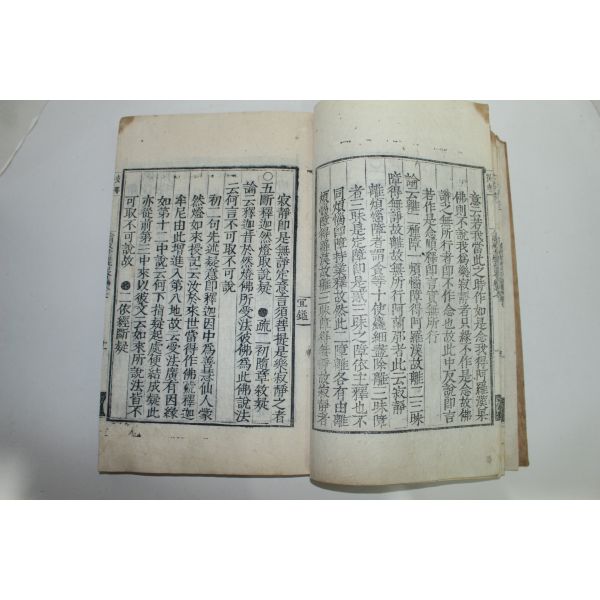 意云若我當此之時作如是念我得阿羅漢果
佛則不說我為樂寂靜者只緣不作是念故佛
讚之無所行者即不作念也故此中反說即言
若作是念順釋即言實無所行
論云離二種障一煩惱障得阿羅漢故離二三昧
障得無諍故離故無所行阿蘭那者此云寂靜
離煩惱障者謂貪等十使纖細盡除離三昧障
者三昧是定障即是惑三昧之障依主釋也不
同煩惱即障持業釋故然此二障離各有由離
煩惱障則離漢故離三昧障則無諍故寂靜者
寂靜即是無諍定意言須菩提是樂寂靜之者
○五斷釋迦然燈取說疑 疏二 初隨章敘疑
論云釋迦昔於然燈佛所受法彼佛為此佛說法
云何言不可取不可說
初二句先述疑意即釋迦因中為善慧仙人蒙
然燈如來授記云汝於來世當得作佛號釋迦
牟尼由此增進入第八地故云受法廣有因緣
如第十二中說云何下指疑起處佛結成疑此
亦從前第三中來以彼文云如來所說法皆不
可取不可說故 二依經斷疑